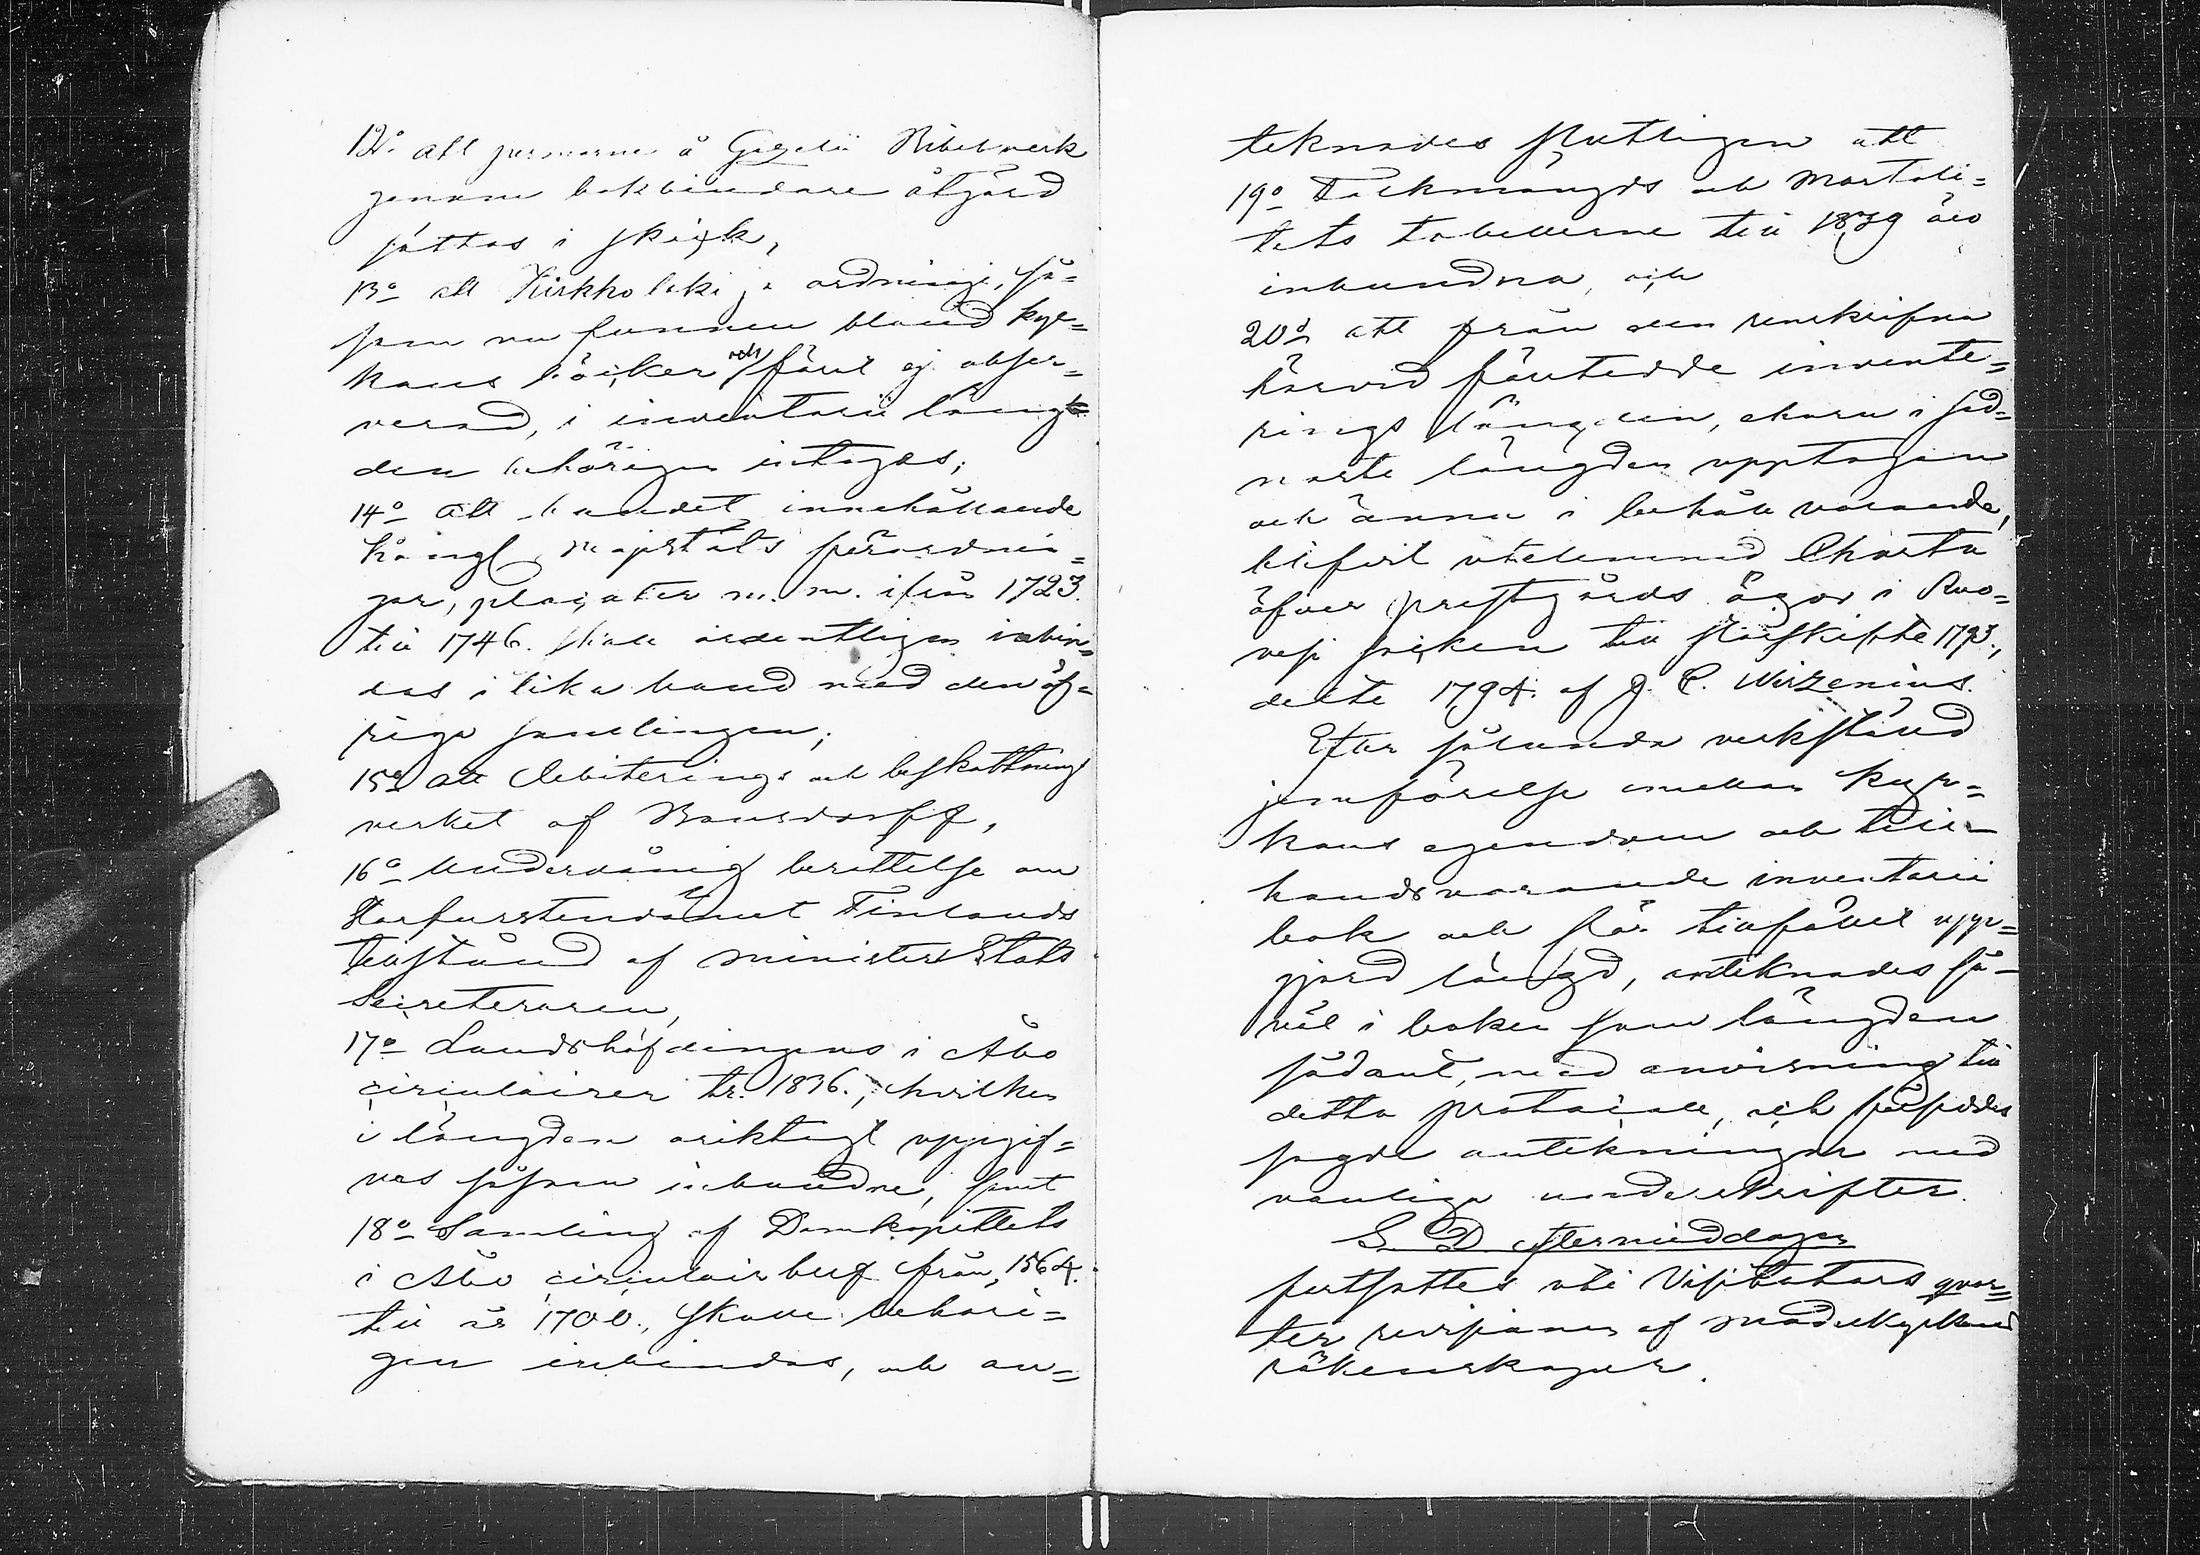 12o att permarne å Gezelii Bibelverk
genom bokbindare åtgärd
sättas i skick,
13o att Kirkholaki ja ordningi, så=
som nu funnen bland kyr=
kans böcker och förut ej obser=
verad, i inventarii läng
den behörigen intages;
14o att bandet innehållande
Kongl Majestäts förordnin=
gar, placater m. m. ifrån 1723.
till 1746. skall ordentligen inbin=
das i lika band med den öf=
riga samlingen;
15o att Debiterings och beskattnings
verket af Bonsdorff,
16o Underdånig berättelse om
Storfurstendömet Finlands
tillstånd af Minister Stats
Secreteraren,
17o Landshöfdingens i Åbo
circulairer tr. 1836., hvilka
i längden oriktigt uppgif=
vas såsom inbundne, samt
18o Samling af Domkapitlets
i Åbo circulair bref från 1564.
till år 1700., skall behöri=
gen inbindas, och an=
teknades slutligen att
19o Folkmängds och Mortali=
tets tabellerne till 1839 äro
inbundna, och
20o att från den renskrifna
härvid företedde invente=
rings längden, ehuru i sed=
naste längden upptagen
och ännu i behåll varande,
blifvit utelemnad Charta
öfver prestgårds ägor i Ruo=
vesi socken till storskifte 1793.,
delte 1794. af J. C. Wirzenius.
Efter sålunda verkställd
jemförelse emellan kyr=
kans egendom och till
hands varande inventarii
bok och för tillfället upp=
gjord längd, anteknades så=
väl i boken som längden
sådant, med anvisning till
detta protocoll, och förseddes
sagde antekningar med
vanliga underskrifter.
S. D. eftermiddagen
fortsattes uti Visitators qvar=
ter revisionen af Moderkyrkans
räkenskaper.